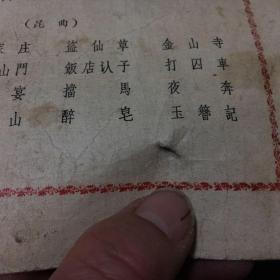 (昆曲)
庄 盗仙草 金山寺
山門 飯店认子 打囚車
宴 擋馬 夜奔
山 醉皂 玉簪記